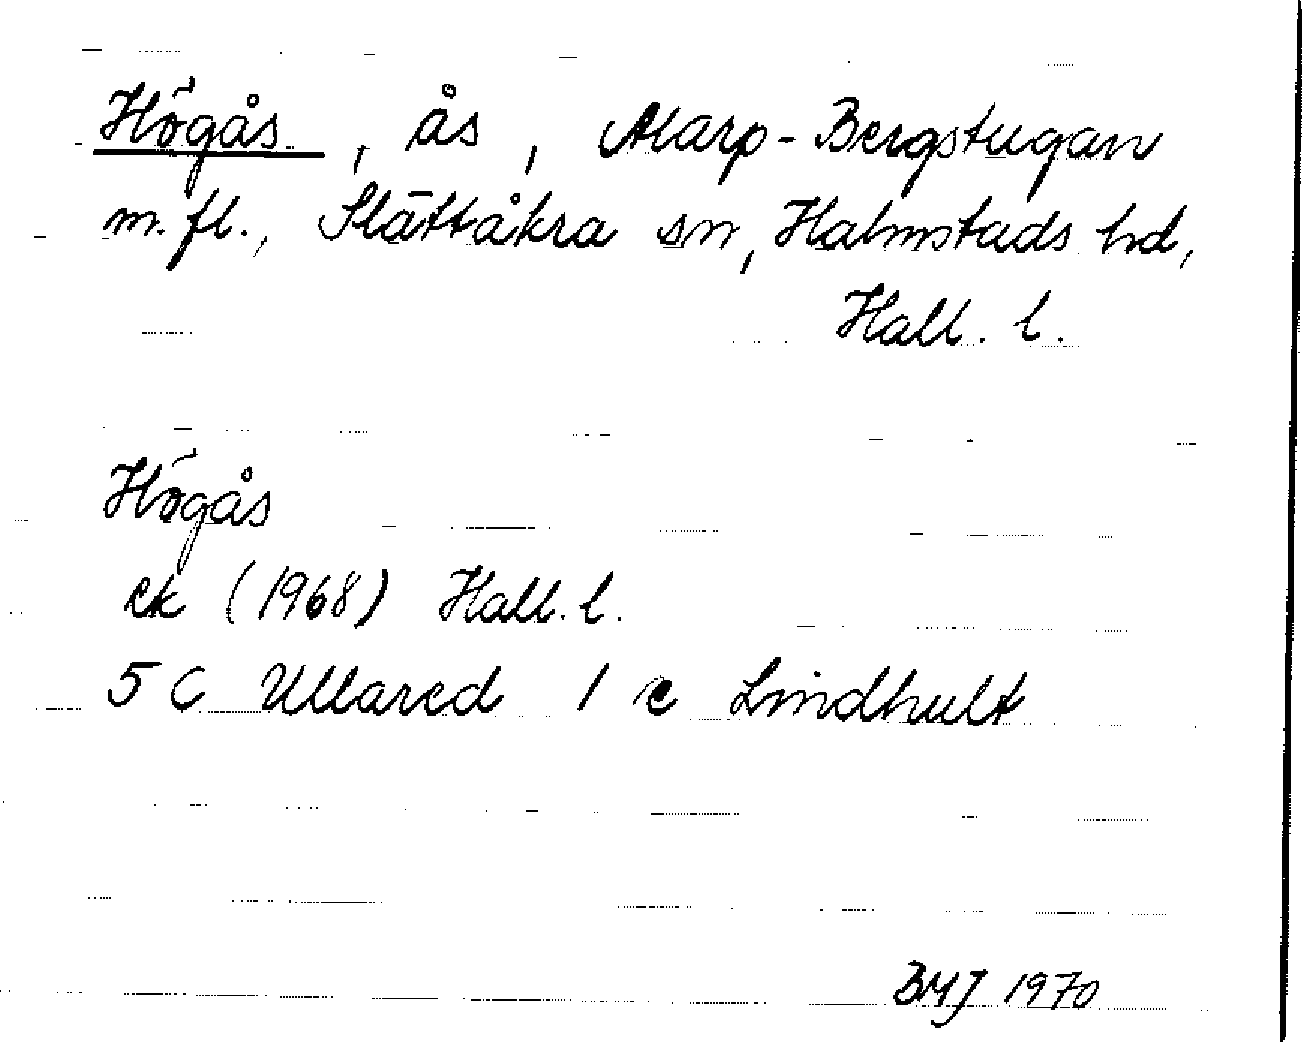 Högås, ås, Alarp-Bergstugan
m.fl., Slättåkra sn, Halmstads hd,
Hall. l.
Högås
ek (1968) Hall. l.
5 C Ullared 1 e Lindhult
BMJ 1970